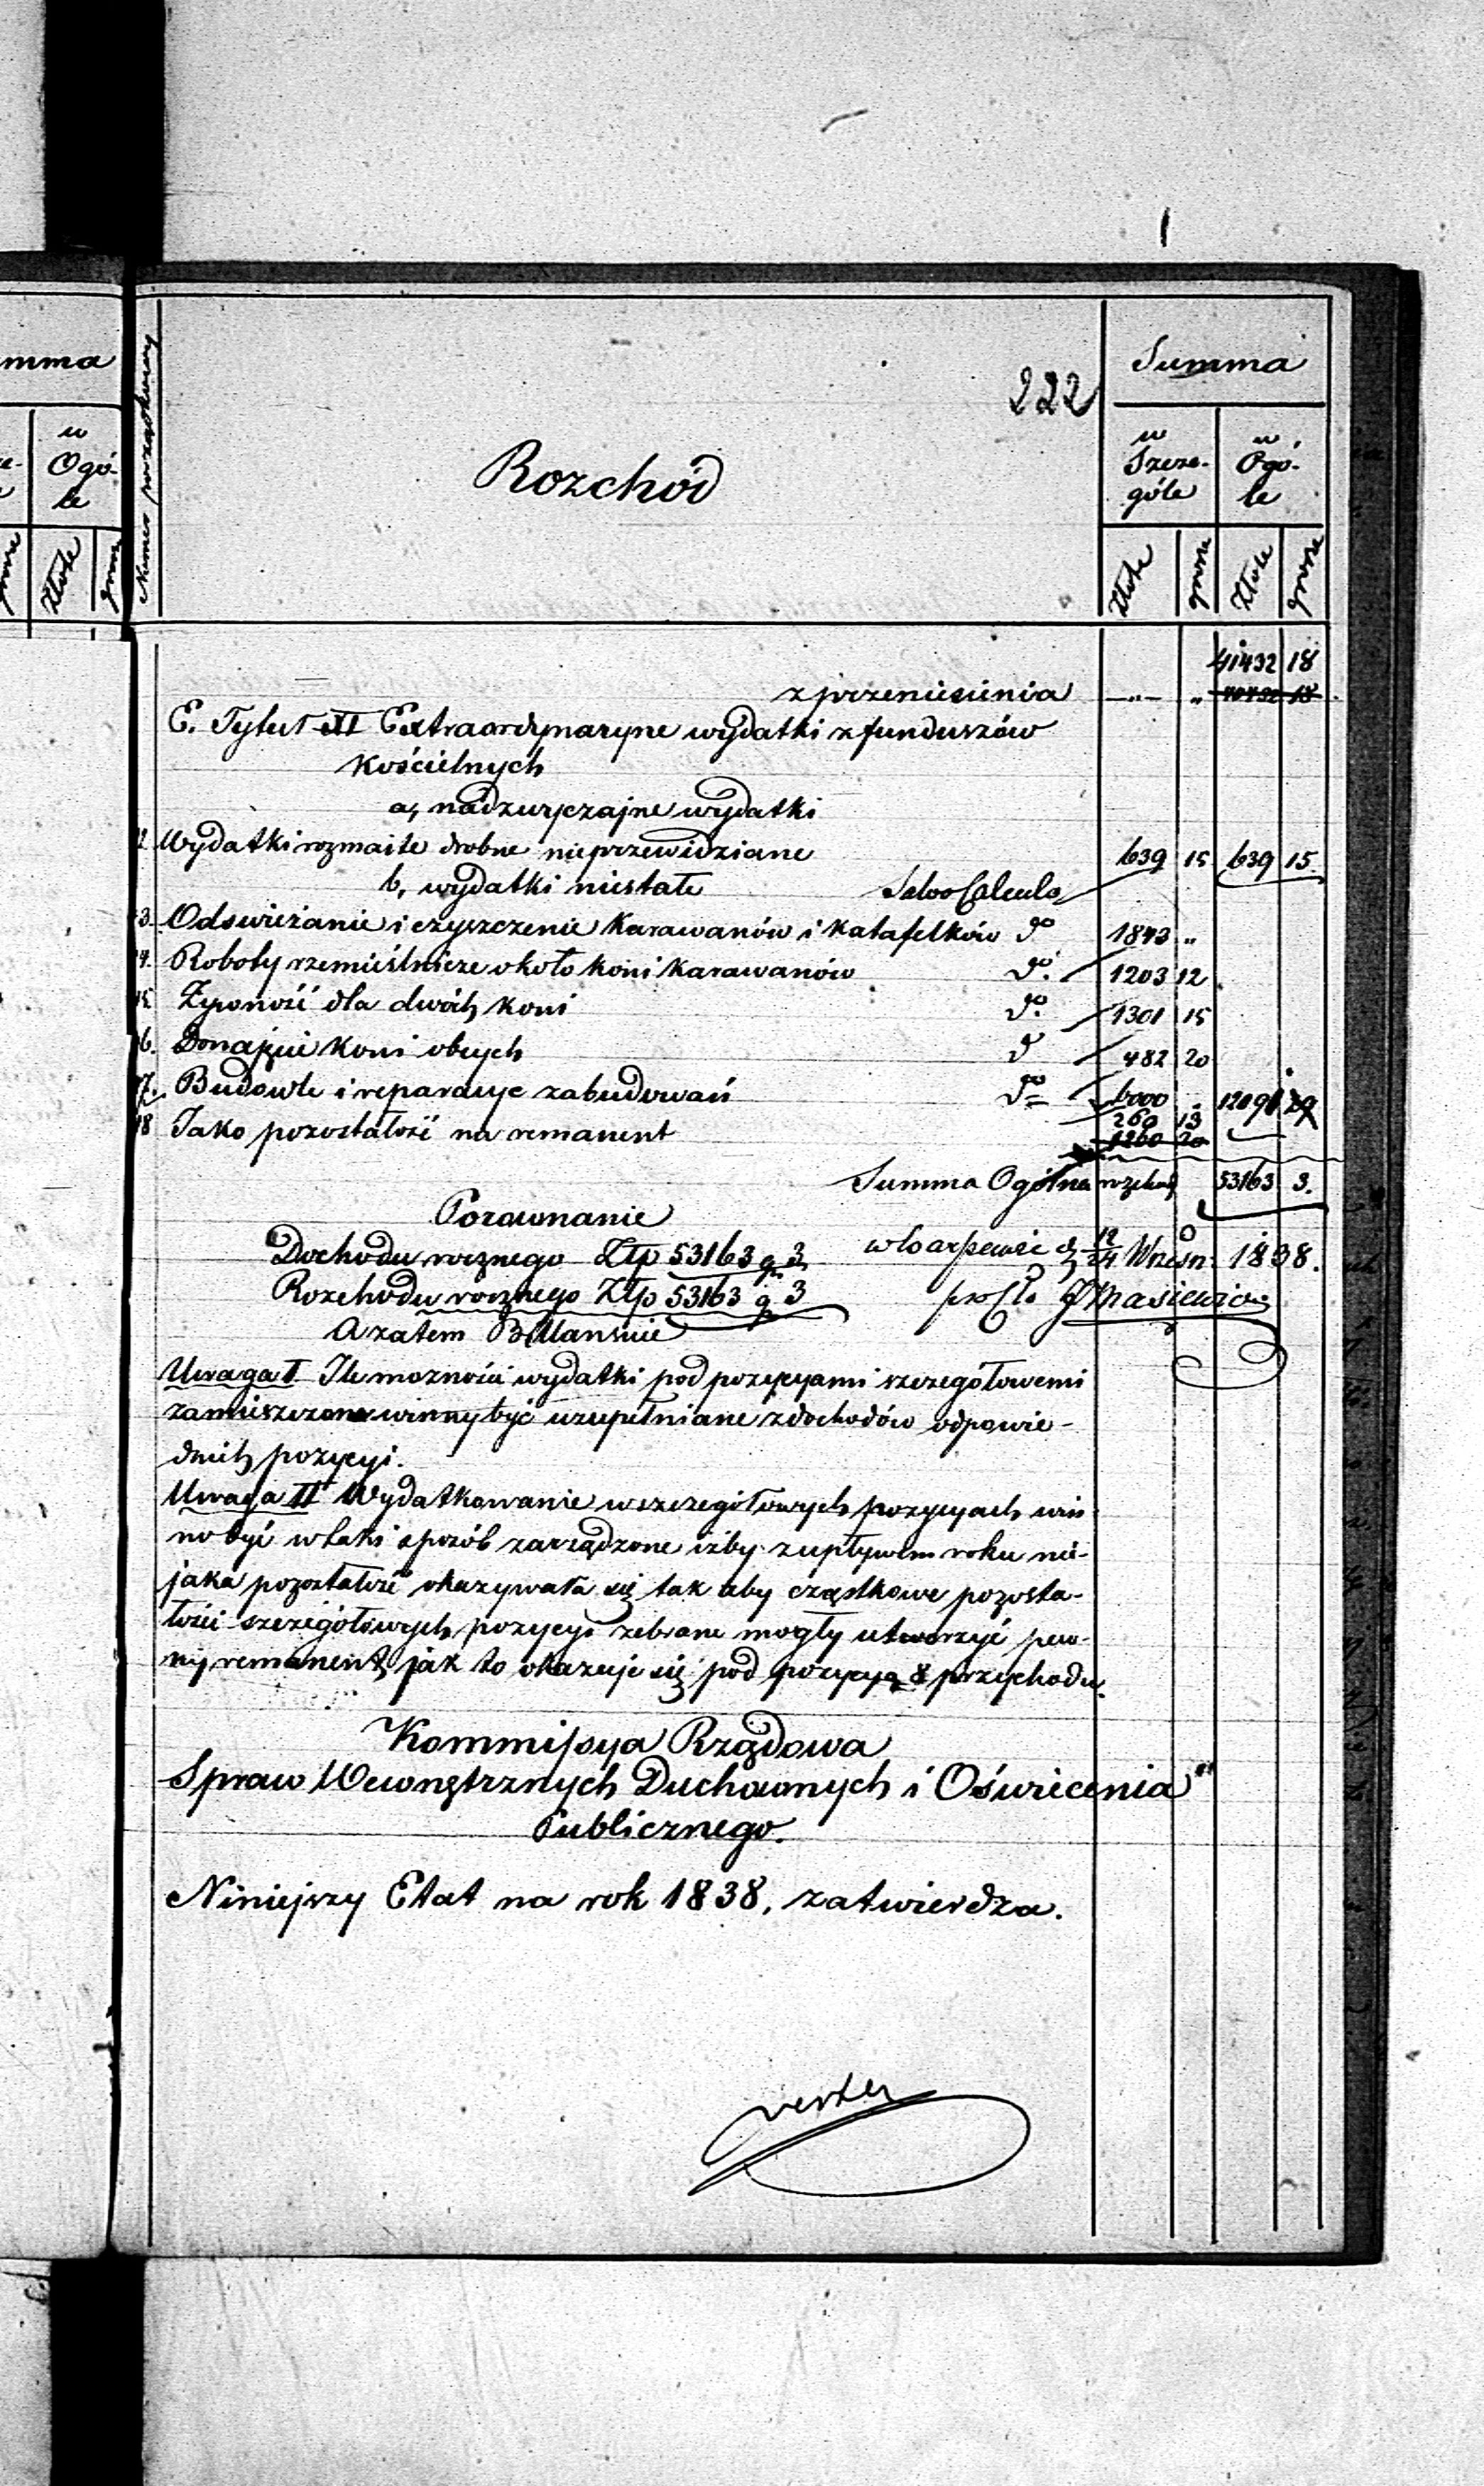 mma
w
Ogó-
le
Złote
Numer porządkowy
222
Rozchód
Summa
w
Szcze-
góle
w
Ogó-
le
Złote
grosze
Złote
grosze
41432 18
z przeniesienia —„— „
E. Tytuł II Extraordynaryne wydatki z funduszów
Kościelnych
a, nadzwyczajne wydatki
2. Wydatki rozmaite drobne nieprzewidziane 639 15 639 15.
b, wydatki niestałe Salvo Calculo
3. Odswieżanie i czyszczenie Karawanów i Katafelków do 1843 „
4. Roboty rzemieślnicze około koni Karawanów do. 1203 12
15. Żywność dla dwóch koni do. 1301 15
16. Donajęcie koni obcych do 482 20
17. Budowle i reparacye zabudowań do 6000 „
260 13
18 Jako pozostałość na remanent 1260 20
Summa Ogólna rozchodu 53163 3.
Porownanie
Dochodu rocznego Złp 53163 g 3
Rozchodu rocznego Złp 53163 g 3
A zatem Billansuie
12/24 Wrześn: 1838.
Uwaga I Ile mozności wydatki pod pozycyami szczegółowemi
zamieszczone winny być uzupełniane z dochodów odpowie-
dnich pozycyi.
Uwaga II Wydatkowanie w szczegółowych pozycyach win-
no być w taki sposób zarządzone iżby z upływem roku nie-
jaka pozostałość okazywała się tak aby cząstkowe pozosta-
łości szczegółowych pozycyi zebrane mogły utworzyć pew-
ny remanent, jak to okazuje się pod pozycyą 8 przychodu.
Kommissya Rządowa
Spraw Wewnętrznych Duchownych i Oświecenia
Publicznego.
Niniejszy Etat na rok 1838, zatwierdza.